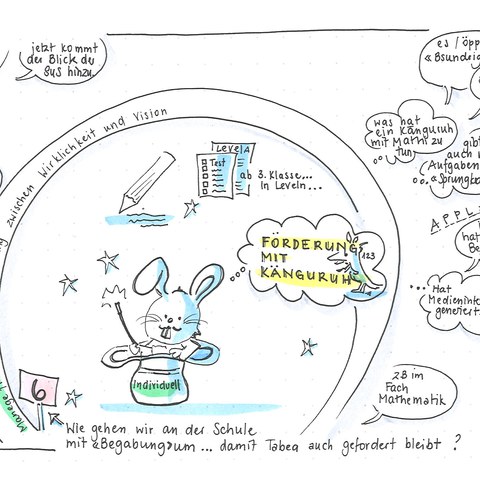 jetzt kommt
der Blick der
SuS hinzu.
es / öpp
«Bsundrig
was hat
ein Känguruh
mit Mathi zu
tun
gibt
auch
Aufgaben
«Sprungbo
zwischen Wirklichkeit und Vision
Level A
Test
ab 3. Klasse...
in Leveln...
APPL
hat
Be
FÖRDERUNG
MIT
KÄNGURUH
123
... Hat
Medienin
generiert.
individuell
6
Manege
zB im
Fach
Mathematik
Wie gehen wir an der Schule
mit «Begabung» um ... damit Tabea auch gefordert bleibt ?